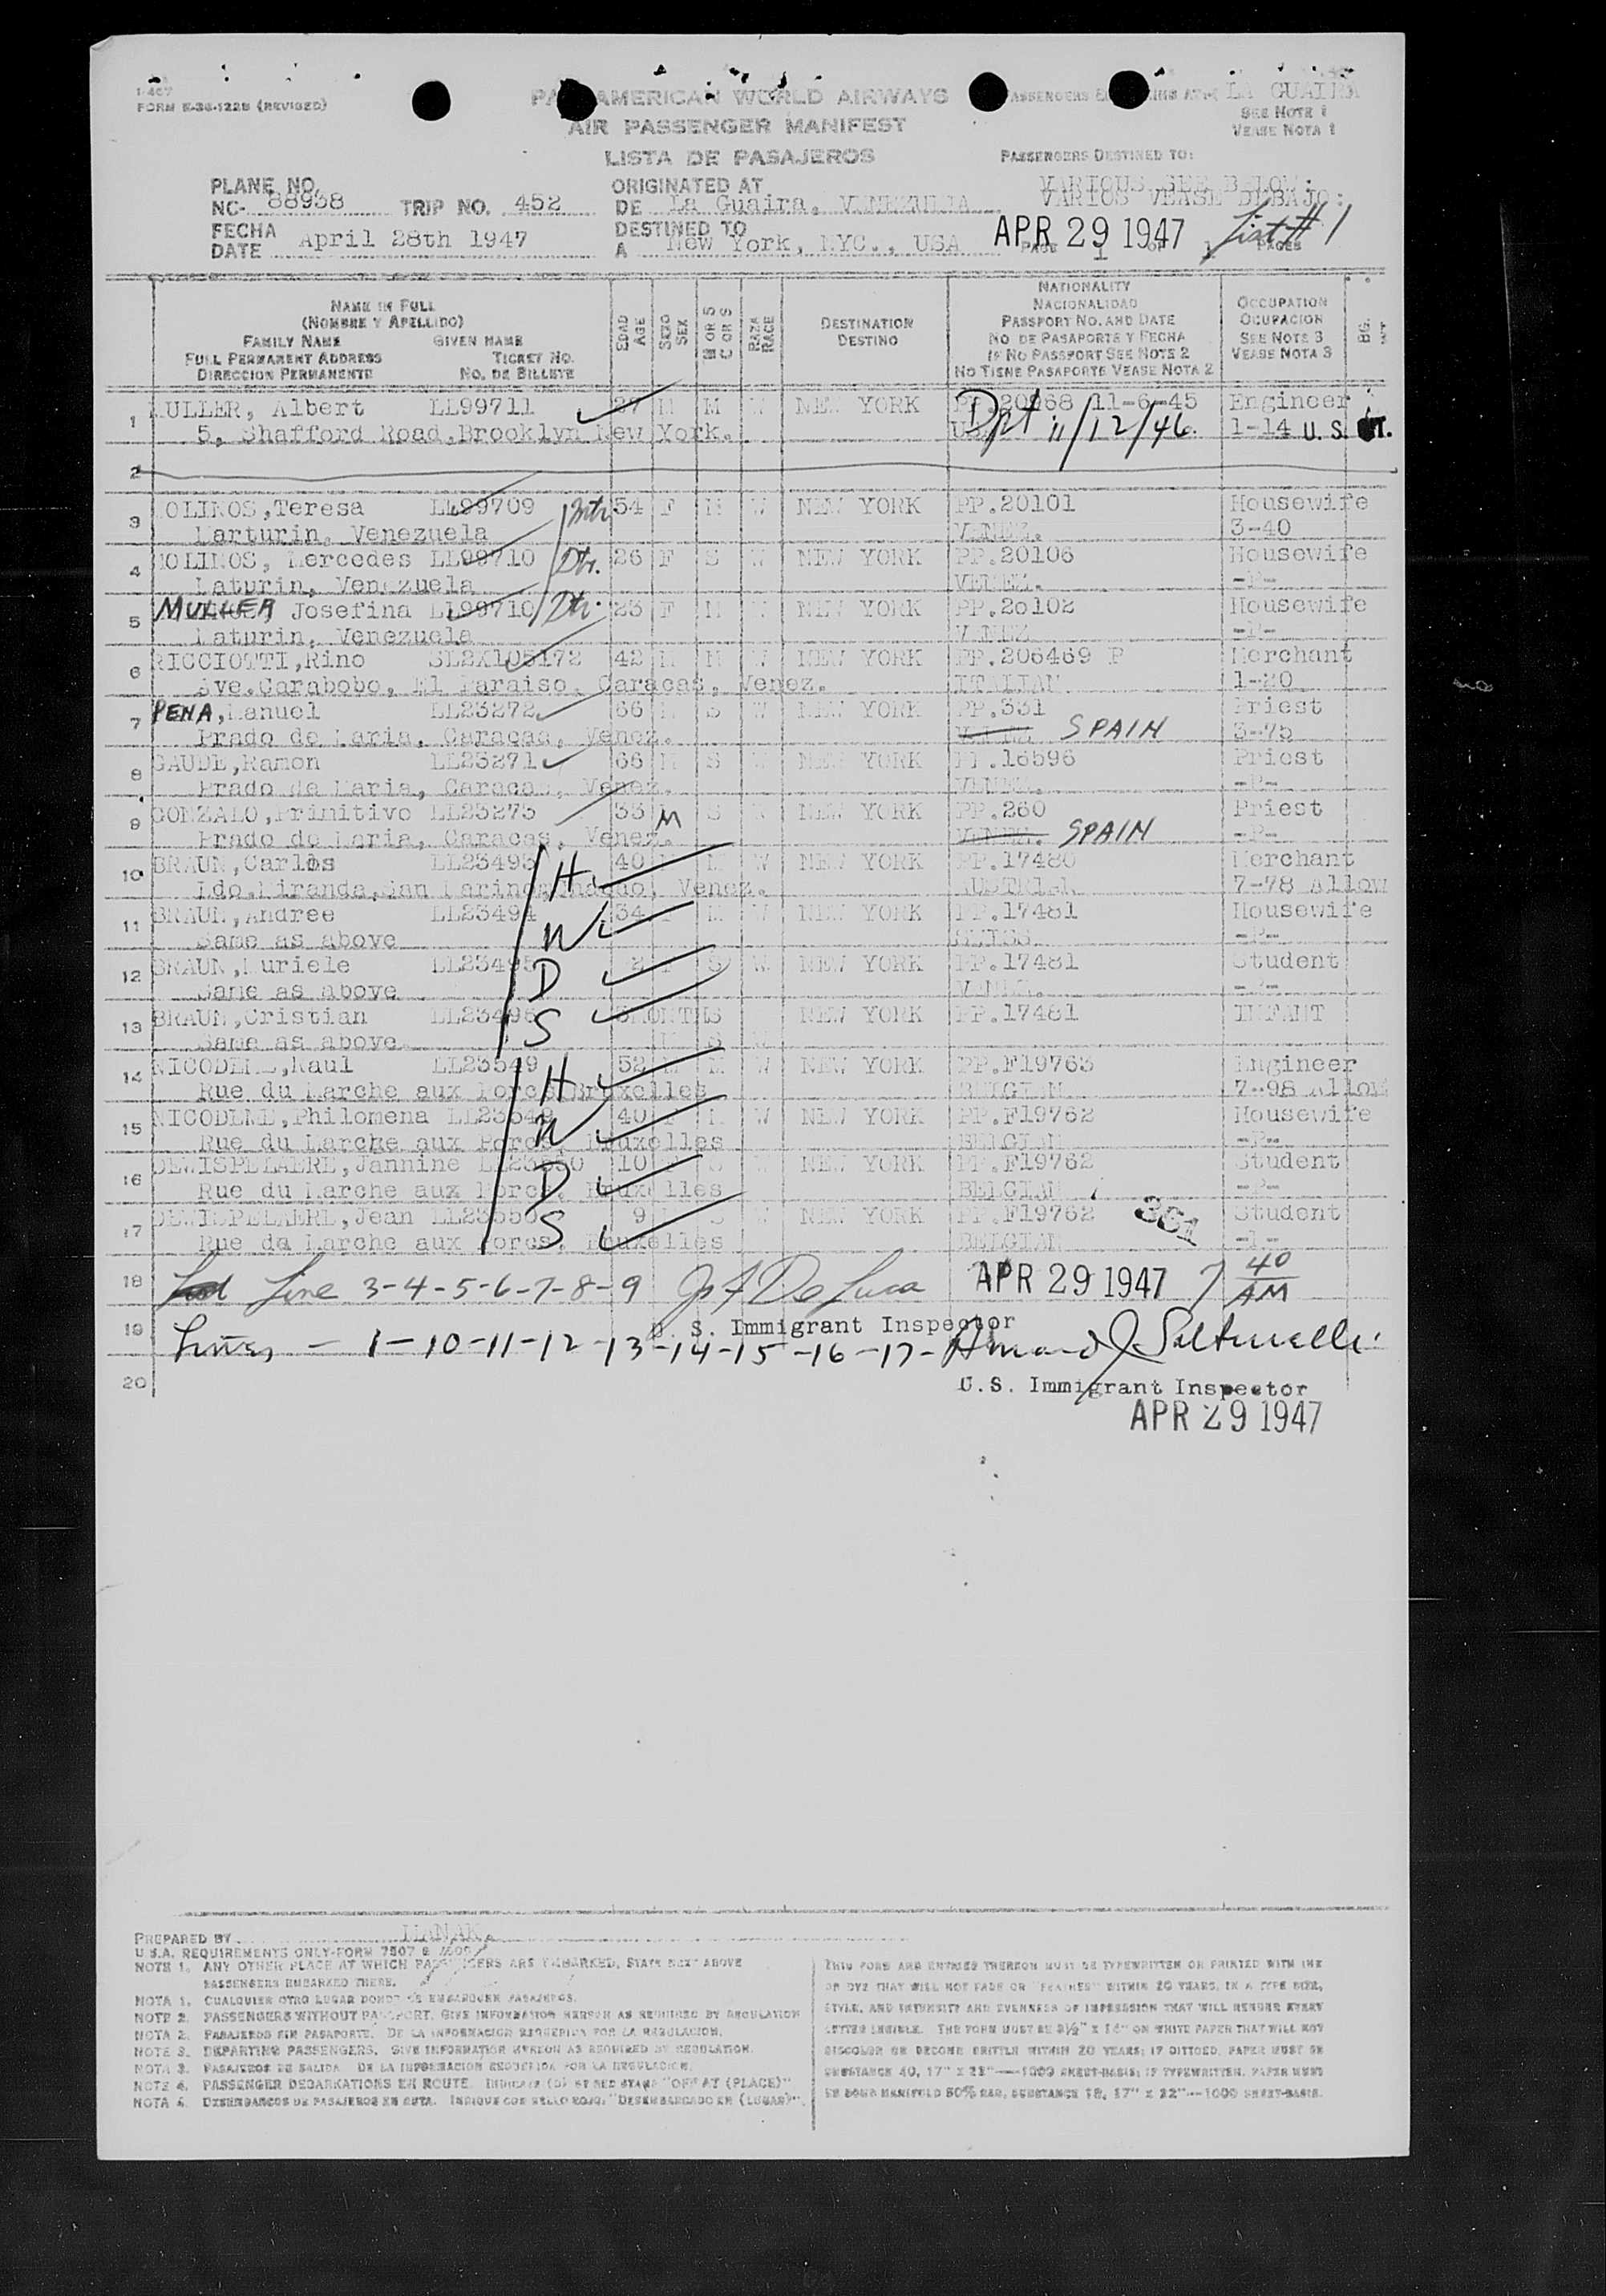 I-407
FORM K-36-122B (REVISED)
PAN AMERICAN WORLD AIRWAYS
AIR PASSENGER MANIFEST
LISTA DE PASAJEROS
LA GUAIRA
SEE NOTE 1
VEASE NOTA 1
PASSENGERS DESTINED TO:
VARIOUS SEE BELOW:
VARIOS VEASE DEBAJO:
PLANE NO.
NC- 88938 TRIP NO. 452
ORIGINATED AT
DE La Guaira, VENEZUELA
FECHA
DATE April 28th 1947
DESTINED TO
A New York, NYC., USA
APR 29 1947 List # 1
PAGE 1 OF 1 PAGES
NAME IN FULL
(NOMBRE Y APELLIDO)
FAMILY NAME GIVEN NAME
FULL PERMANENT ADDRESS TICKET NO.
DIRECCION PERMANENTE NO. DE BILLETE
EDAD AGE
SEXO SEX
M OR S C OR S
RAZA RACE
DESTINATION
DESTINO
NATIONALITY
NACIONALIDAD
PASSPORT NO. AND DATE
NO DE PASAPORTE Y FECHA
IF NO PASSPORT SEE NOTE 2
NO TIENE PASAPORTE VEASE NOTA 2
OCCUPATION
OCUPACION
SEE NOTE 3
VEASE NOTA 3
1 MULLER, Albert LL99711 37 M M W NEW YORK PP.20968 11-6-45 Engineer
5, Shafford Road, Brooklyn New York. Dpt 11/12/46. 1-14 U. S.
2
3 MOLINOS, Teresa LL99709 54 F M W NEW YORK PP.20101 Housewife
Marturin, Venezuela VENEZ. 3-40
4 MOLINOS, Mercedes LL99710 Dtr. 26 F S W NEW YORK PP.20106 Housewife
Maturin, Venezuela VENEZ.
5 MULLER Josefina LL99710 Dtr. 23 F M W NEW YORK PP.20102 Housewife
Maturin, Venezuela VENEZ
6 RICCIOTTI, Rino SL2X105172 42 M M W NEW YORK PP.206469 P Merchant
Ave. Carabobo, El Paraiso, Caracas, Venez. ITALIAN 1-20
7 PENA, Manuel LL23272 66 M S W NEW YORK PP.331 Priest
Prado de Maria, Caracas, Venez. SPAIN 3-75
8 GAUDE, Ramon LL23271 66 M S W NEW YORK PP.16596 Priest
Prado de Maria, Caracas, Venez. VENEZ.
9 GONZALO, Primitivo LL23273 33 M S W NEW YORK PP.260 Priest
Prado de Maria, Caracas, Venez. VENEZ. SPAIN
10 BRAUN, Carlos LL23493 H 40 M M W NEW YORK PP.17480 Merchant
Edo. Miranda, San Marino, Chacao, Venez. AUSTRIAN 7-78 Allow
11 BRAUN, Andree LL23494 W 34 F M W NEW YORK PP.17481 Housewife
Same as above SUISS
12 BRAUN, Muriele LL23495 D 2 F S W NEW YORK PP.17481 Student
Same as above VENEZ.
13 BRAUN, Cristian LL23496 S MONTHS NEW YORK PP.17481 INFANT
Same as above
14 NICODEME, Raul LL23549 H 52 M M W NEW YORK PP.F19763 Engineer
Rue du Marche aux Porcs, Bruxelles BELGIAN 7-98 Allow
15 NICODEME, Philomena LL23549 W 40 F M W NEW YORK PP.F19762 Housewife
Rue du Marche aux Porcs, Bruxelles BELGIAN
16 DEWISPELAERE, Jannine LL23550 D 10 F S W NEW YORK PP.F19762 Student
Rue du Marche aux Porcs, Bruxelles BELGIAN
17 DEWISPELAERE, Jean LL23550 S 9 M S W NEW YORK PP.F19762 361 Student
Rue de Marche aux Porcs, Bruxelles BELGIAN
18 Line 3-4-5-6-7-8-9 Jos F De Luca APR 29 1947 7 40 AM
19 U. S. Immigrant Inspector
Lines - 1-10-11-12-13-14-15-16-17-
20 U.S. Immigrant Inspector
APR 29 1947
PREPARED BY
U.S.A. REQUIREMENTS ONLY-FORM 7507 &
NOTE 1. ANY OTHER PLACE AT WHICH PASSENGERS ARE EMBARKED, STATE NEXT ABOVE
PASSENGERS EMBARKED THERE.
NOTA 1. CUALQUIER OTRO LUGAR DONDE SE EMBARQUEN PASAJEROS.
NOTE 2. PASSENGERS WITHOUT PASSPORT. GIVE INFORMATION HEREON AS REQUIRED BY REGULATION
NOTA 2. PASAJEROS SIN PASAPORTE. DE LA INFORMACION REQUERIDA POR LA REGULACION.
NOTE 3. DEPARTING PASSENGERS. GIVE INFORMATION HEREON AS REQUIRED BY REGULATION.
NOTA 3. PASAJEROS DE SALIDA DE LA INFORMACION REQUERIDA POR LA REGULACION.
NOTE 4. PASSENGER DEBARKATIONS EN ROUTE. INDICATE (D) BY RED STAMP "OFF AT (PLACE)"
NOTA 4. DESEMBARCOS DE PASAJEROS EN RUTA. INDIQUE CON SELLO ROJO: "DESEMBARCADO EN (LUGAR)".
THIS FORM AND ENTRIES THEREON MUST BE TYPEWRITTEN OR PRINTED WITH INK
OR DYE THAT WILL NOT FADE OR "FEATHER" WITHIN 20 YEARS, IN A TYPE SIZE,
STYLE, AND INTENSITY AND EVENNESS OF IMPRESSION THAT WILL RENDER EVERY
LETTER LEGIBLE. THE FORM MUST BE 8½" X 14" ON WHITE PAPER THAT WILL NOT
DISCOLOR OR BECOME BRITTLE WITHIN 20 YEARS; IF DITTOED, PAPER MUST BE
SUBSTANCE 40, 17" X 22"—1000 SHEET-BASIS; IF TYPEWRITTEN, PAPER MUST
BE BOND MANIFOLD 50% RAG, SUBSTANCE 18, 17" X 22"—1000 SHEET-BASIS.